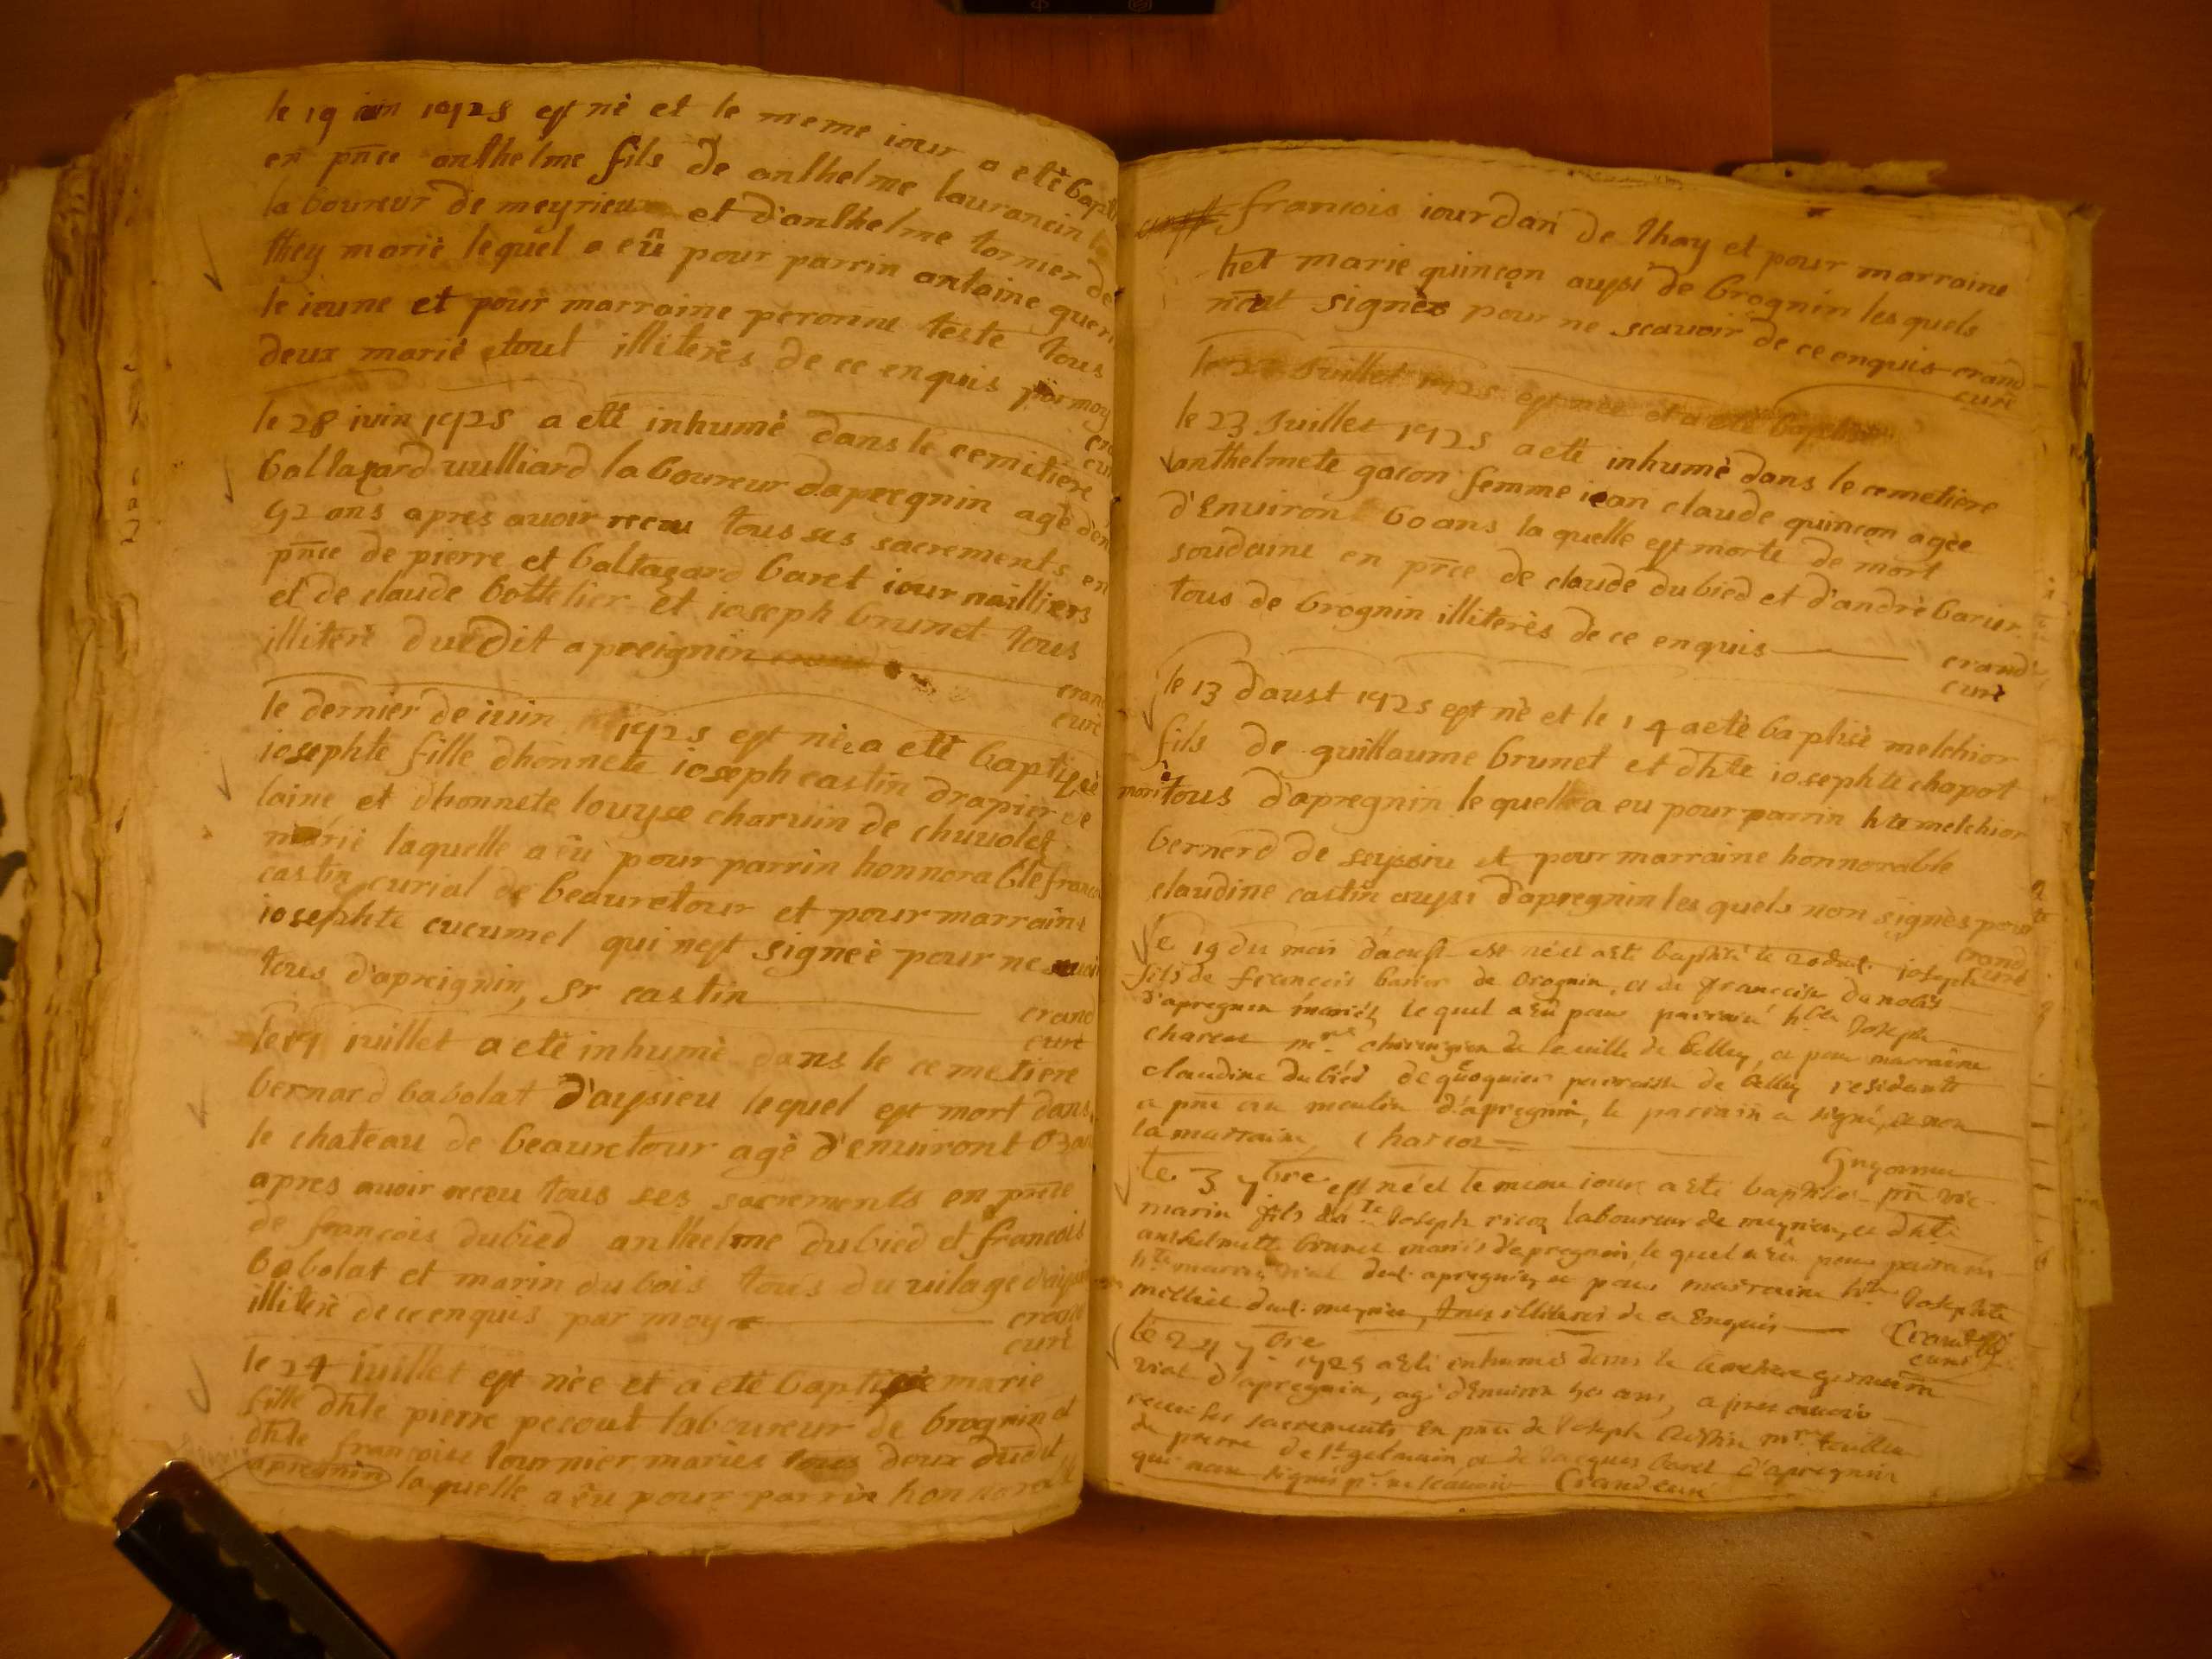 le 19 iuin 1725 est nè et le meme iour a etè bapt
en pñce anthelme fils de anthelme laurancin
laboureur de meyrieu et d'anthelme tornier de
they mariè lequel a eû pour parrin antoine
le ieune et pour marraine peronne teste tous
deux mariè etout illiterès de ce enquis par moy
cura
le 28 iuin 1725 a etè inhumè dans le cemitiere
baltazard vulliard laboureur dapregnin agè d'en
92 ans apres avoir receu tous ses sacrements en
pñce de pierre et baltazard baret iournailliers
et de claude bottelier et ioseph brunet tous
illiterè duedit apreignin
crand
curè
le dernier de iuin 1725 est nèe a etè baptizèe
iosephte fille dhonnete ioseph castin drapier de
laine et dhonnete louyse charvin de chuvolet
mariè laquelle a eû pour parrin honnorable franco
castin curial de beauretour et pour marraine
iosephte cucumel qui nest signeè pour ne scavoir
tous d'apreignin, Sr castin
crand
curè
iuillet a etè inhumè dans le cemetiere
bernard babolat D'aysieu lequel est mort dans
le chateau de beauretour agè d'environt 63 an
apres avoir receu tous ses sacrements en pñce
de françois dubied anthelme dubied et francois
babolat et marin dubois tous du vilage
illiterè de ce enquis par moy
crand
curè
le 24 iuillet est nèe et a etè baptizèe marie
fille dhte pierre pecout laboureur de brognin et
dhte françoise tournier mariès tous deux dudit
apregnin laquelle a eu pour parrin honnorable
francois iourdan de lhay et pour marraine
het marie quinçon aussi de brognin les quels
nont signès pour ne scavoir de ce enquis crand
curè
le 22 Juillet 1725 est nèe et a etè baptisè
le 23 Juillet 1725 a etè inhumè dans le cemetiere
anthelmete gacon femme iean claude quinçon agèe
d'Environ 60 ans la quelle est morte de mort
soudaine en pñce de claude dubied et d'andrè barier
tous de brognin illiterès de ce enquis
crand
curè
le 13 daust 1725 est nè et le 14 a etè baptisè melchior
fils de guillaume brunet et dhte iosephte chapot
mariè tous d'apregnin le quelle a eu pour parrin hte melchior
bernerd de seyssiu et pour marraine honnorable
claudine castin aussi d'apregnin les quels non signès pour
crand
curè
Le 19 du mois d'aoust est né et a eté baptisé le 20 dud. joseph
fils de francois barier de brognin, et de francoise
d'apregnin mariés, lequel a eû pour parrain hble Joseph
charcot mre chirurgien de la ville de belley, et pour marraine
claudine dubied de paroisse de belley residante
a pñt au moulin d'apregnin, le parrain a signé, et non
la marraine, Charcot
Le 3 7bre est né et le meme iour a eté baptisé
marin fils de Joseph laboureur de meyrieu, et dhte
anthelmette brunet mariés d'apregnin, lequel a eû pour parrain
hte marin vial dud. apregnin, et pour marraine hte Josephte
dud. meyrieu, tous illiterés de ce Enquis
Crand
curé
Le 24 7bre 1725 a eté inhumé dans le cemetiere germain
vial d'apregnin, agé d'Environ 50 ans, apres avoir
receu ses sacrements En pñce de Joseph mre tailleur
de pierre de St germain, et de Jacques baret d'apregnin
qui n'ont signés pr ne scavoir Crand curé